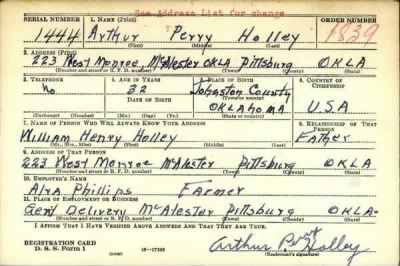 See Address List for change
SERIAL NUMBER 1. NAME (Print) ORDER NUMBER
1444 Arthur Perry Holley 1839
(First) (Middle) (Last)
2. ADDRESS (Print)
223 West Monroe McAlester OKLA Pittsburg OKLA
(Number and street or R. F. D. number) (Town) (County) (State)
3. TELEPHONE 4. AGE IN YEARS 5. PLACE OF BIRTH 6. COUNTRY OF CITIZENSHIP
No 32 Johnston County
DATE OF BIRTH OKLAHOMA U.S.A
(Exchange) (No.) (Mo.) (Day) (Yr.) (State or country)
7. NAME OF PERSON WHO WILL ALWAYS KNOW YOUR ADDRESS 8. RELATIONSHIP OF THAT PERSON
William Henry Holley Father
(Mr., Mrs., Miss) (First) (Middle) (Last)
9. ADDRESS OF THAT PERSON
223 West Monroe McAlester Pittsburg OKLA
(Number and street or R. F. D. number) (Town) (County) (State)
10. EMPLOYER'S NAME
Alva Phillips Farmer
11. PLACE OF EMPLOYMENT OR BUSINESS
Genl Delivery McAlester Pittsburg OKLA-
(Number and street or R. F. D. number) (Town) (County) (State)
I AFFIRM THAT I HAVE VERIFIED ABOVE ANSWERS AND THAT THEY ARE TRUE.
REGISTRATION CARD
D. S. S. Form 1 16—17105 Arthur P Holley
(Registrant's signature)